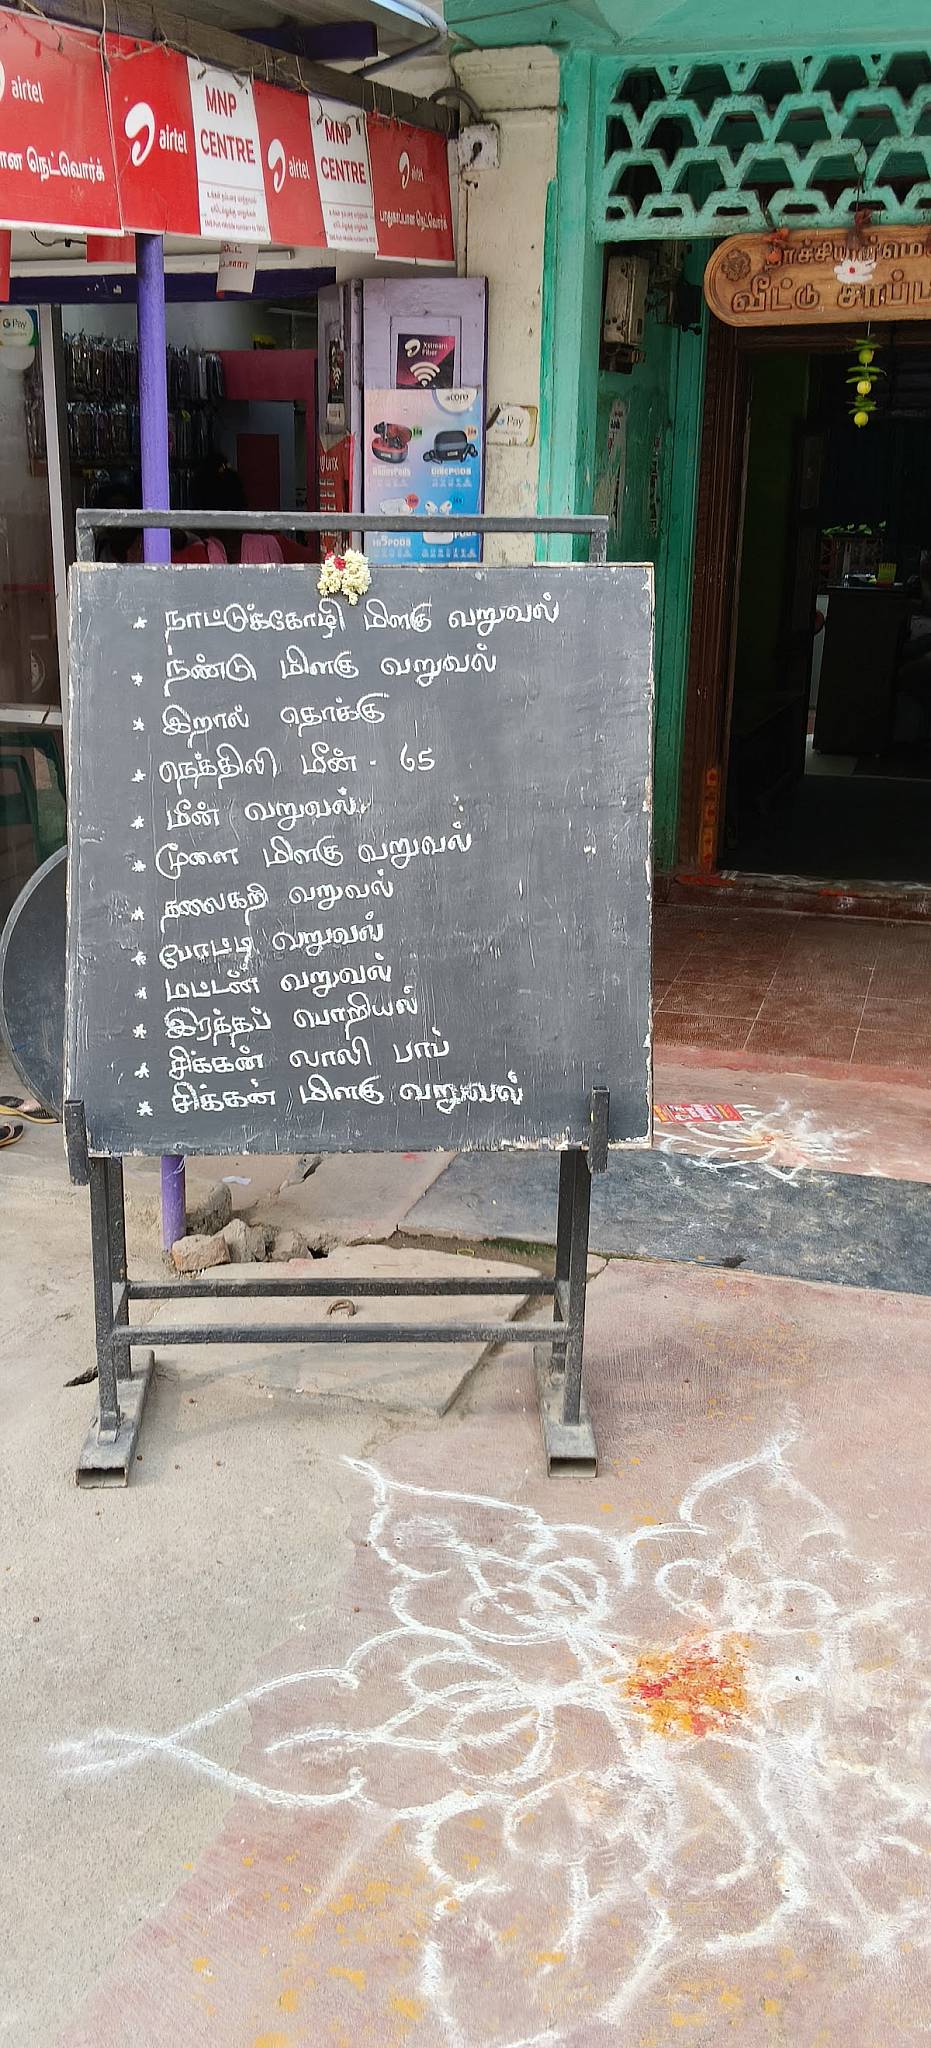 airtel
MNP
CENTRE
airtel
MNP
CENTRE
airtel
நெட்வொர்க்
பாதுகாப்பான நெட்வொர்க்
G Pay
Xstream
Fiber
G Pay
வீட்டு
* நாட்டுக்கோழி மிளகு வறுவல்
* நண்டு மிளகு வறுவல்
* இறால் தொக்கு
* நெத்திலி மீன் - 65
* மீன் வறுவல்
* மூளை மிளகு வறுவல்
* தலைகறி வறுவல்
* போட்டி வறுவல்
* மட்டன் வறுவல்
* இரத்தப் பொறியல்
* சிக்கன் லாலி பாப்
* சிக்கன் மிளகு வறுவல்